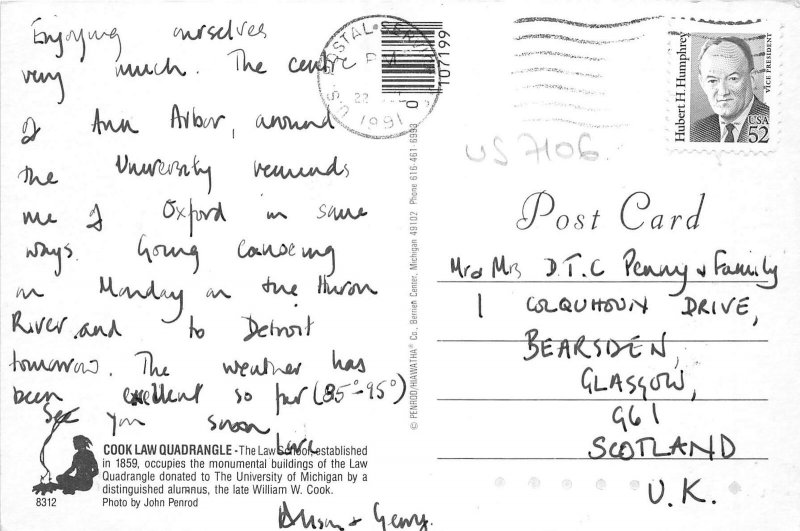 Enjoying ourselves
very much. The centre
of Ann Arbor, around
the University reminds
me of Oxford in some
ways. Going canoeing
on Monday on the Huron
River and to Detroit
tomorrow. The weather has
been excellent so far (85°-95°)
See you soon
Love
Alison & George.
COOK LAW QUADRANGLE - The Law School, established
in 1859, occupies the monumental buildings of the Law
Quadrangle donated to The University of Michigan by a
distinguished alumnus, the late William W. Cook.
Photo by John Penrod
8312
© PENROD/HIAWATHA® Co., Berrien Center, Michigan 49102 Phone 616-461-6993
U.S. POSTAL SERVICE
PM
22
1991
0 107199
US 7106
Hubert H. Humphrey
VICE PRESIDENT
USA
52
Post Card
Mr & Mrs D.T.C Penny & Family
1 COLQUHOUN DRIVE,
BEARSDEN,
GLASGOW,
G61
SCOTLAND
U.K.